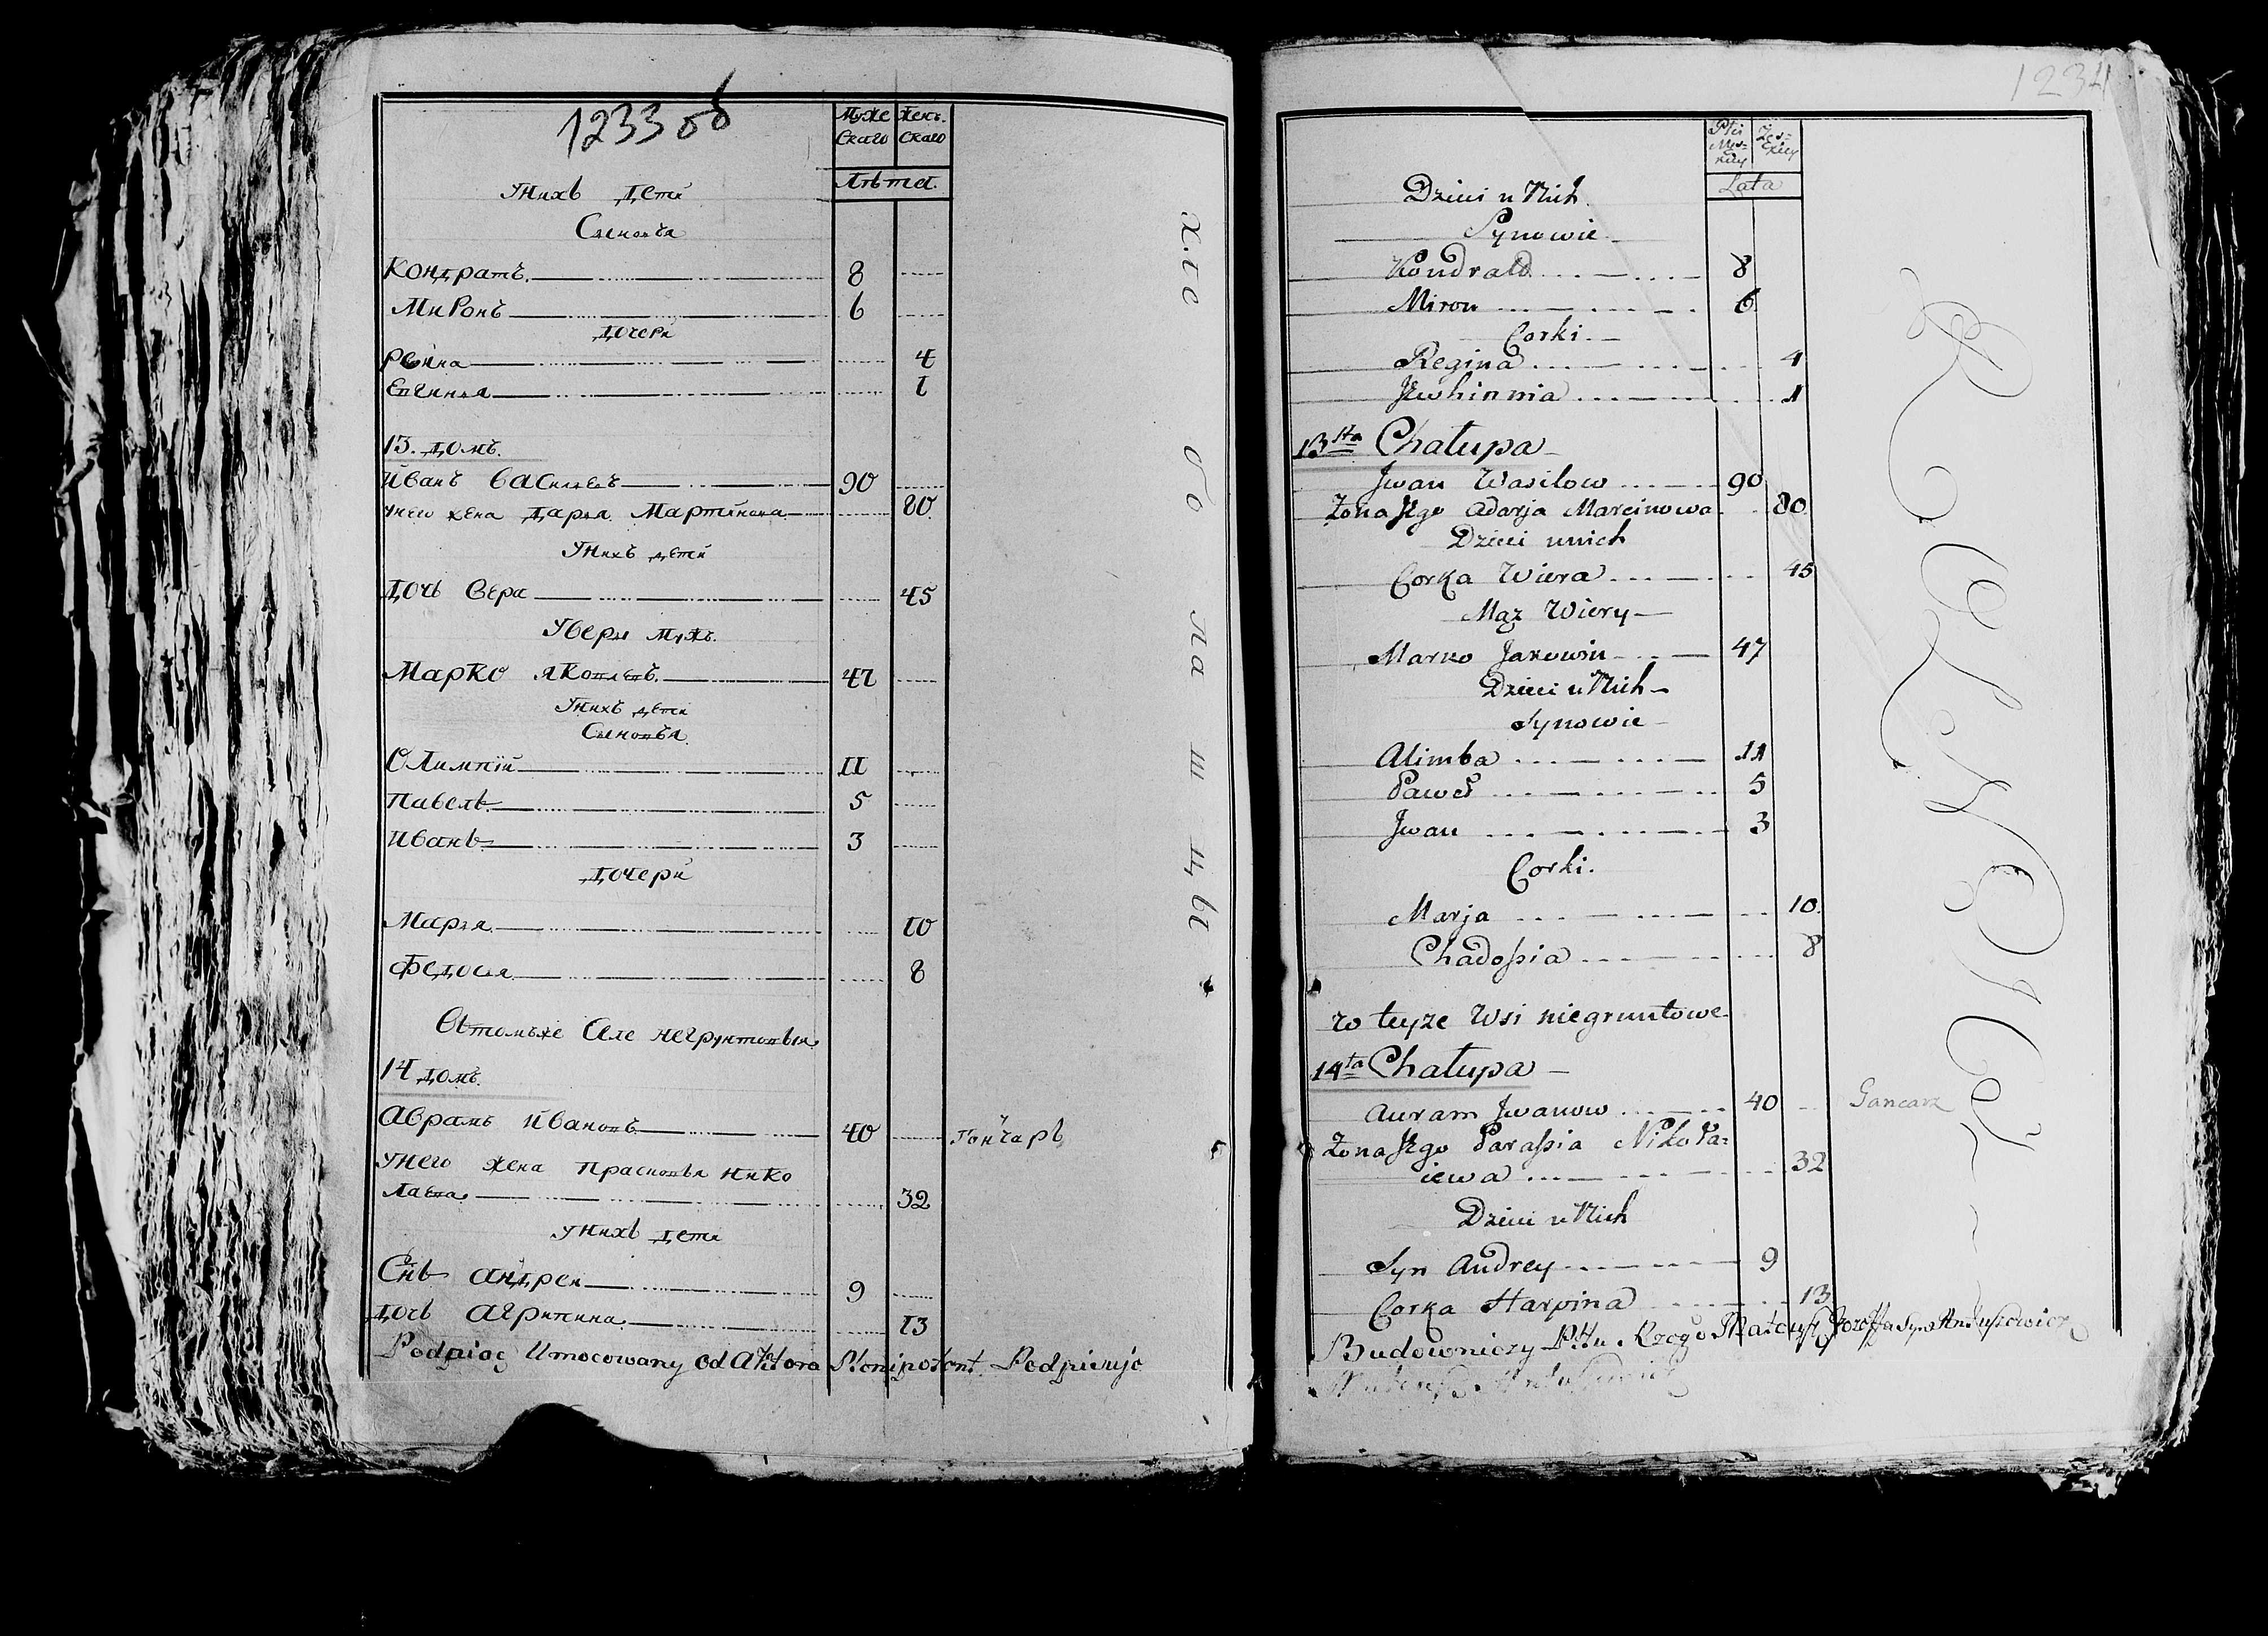 1233 об
Муже Женъ.
скаго скаго
Лѣта.
Унихъ дети
Сыновѣя
Кондратъ. 8
Миронъ 6
дочери
Реина 4
Евгиния 1
13. домъ.
Иванъ Василевъ 90
унего жена Дарья Мартинова 80.
Унихъ дети
дочь Вера 45
Увери мужъ.
Марко Яковлевъ. 47
Унихъ дети
Сыновѣя.
Олимпiй 11
Павелъ 5
Иванъ 3
дочери
Марья 10
Федосья 8
Втомъже Селе негрунтовыя
14 домъ.
Аврамъ Ивановъ 40 Гончаръ
Унего жена Прасковья Нико
лаева 32
Унихъ дети
Снъ Андрей 9
дочь Агрипина 13
Podpiog Umocowany od Aktora Plenipotent Podpisuje
1234
Płci Żeń-
Męz- skiey
kiey
Lata
Dzieci u Nich
Synowie
Kondrald 8
Miron 6
Corki.
Regina 4
Jewhinnia 1
13sta Chałupa
Jwan Wasilow 90
Żona Jego Adarja Marcinowa 80
Dzieci unich
Corka Wiera 45
Mąz Wiery
Marko Jakowin 47
Dzieci u Nich
Synowie
Alimba 11
Paweł 5
Jwan 3
Corki.
Marja 10.
Chadossia 8
w teyze Wsi niegruntowe
14ta Chałupa
Auram Jwanow 40 Gancarz
Żona Jego Parassia Nikoła=
iewa 32
Dzieci u Nich
Syn Andrey 9
Corka Harpina 13
Budowniczy Pttu Rzgo